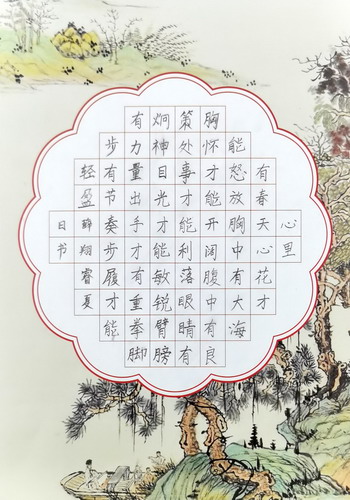 心里
有春天心花才
能怒放胸中有大海
胸怀才能开阔腹中有良
策处事才能利落眼睛有
炯神目光才能敏锐臂膀
有力量出手才有重拳脚
步有节奏步履才能
轻盈
薛翔睿夏
日书